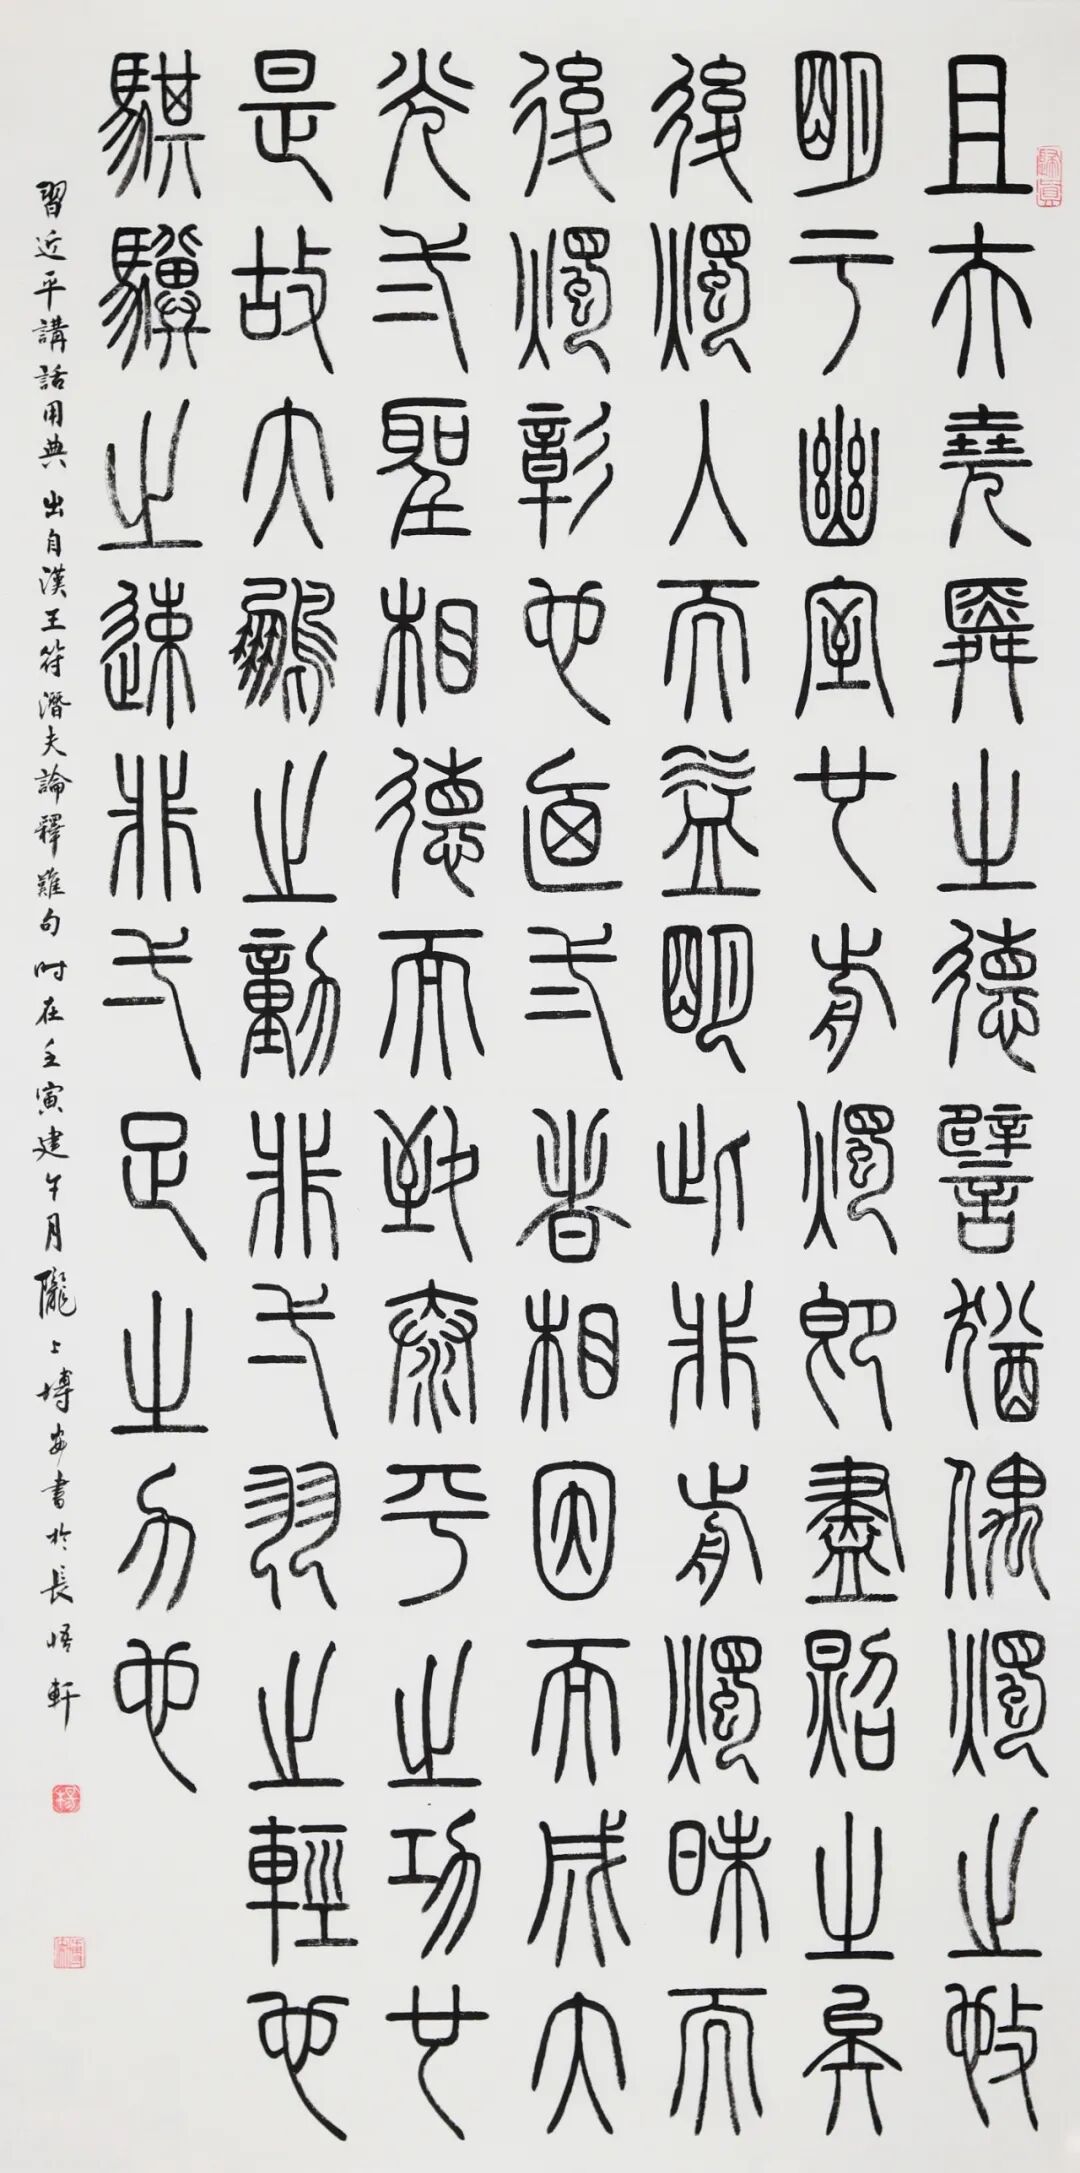 且夫堯舜之德譬猶偶燭之施
明于幽室也前燭即盡照之矣
後燭入而益明此非前燭昧而
後燭彰也迺弍者相因而成大
光弍聖相德而致泰平之功也
是故大鵬之動非弌羽之輕也
騏驥之速非弌足之力也
習近平講話用典 出自漢王符潛夫論釋難句 時在壬寅建午月隴上博安書於長悟軒